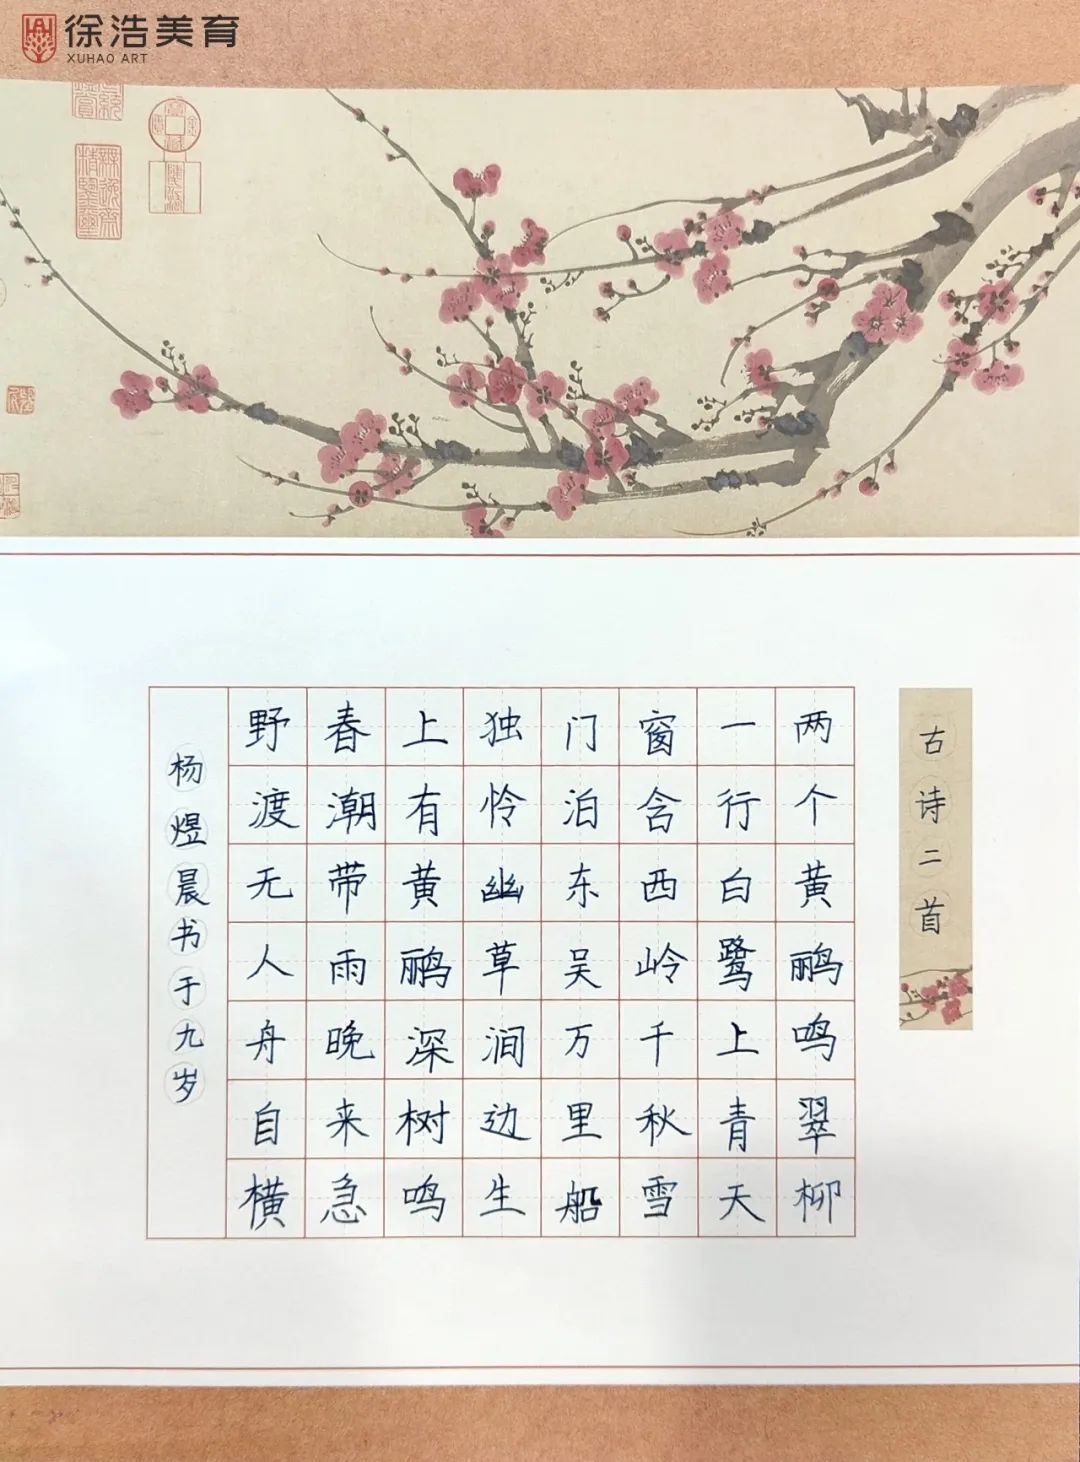 徐浩美育
XUHAO ART
古诗二首
两个黄鹂鸣翠柳
一行白鹭上青天
窗含西岭千秋雪
门泊东吴万里船
独怜幽草涧边生
上有黄鹂深树鸣
春潮带雨晚来急
野渡无人舟自横
杨煜晨书于九岁